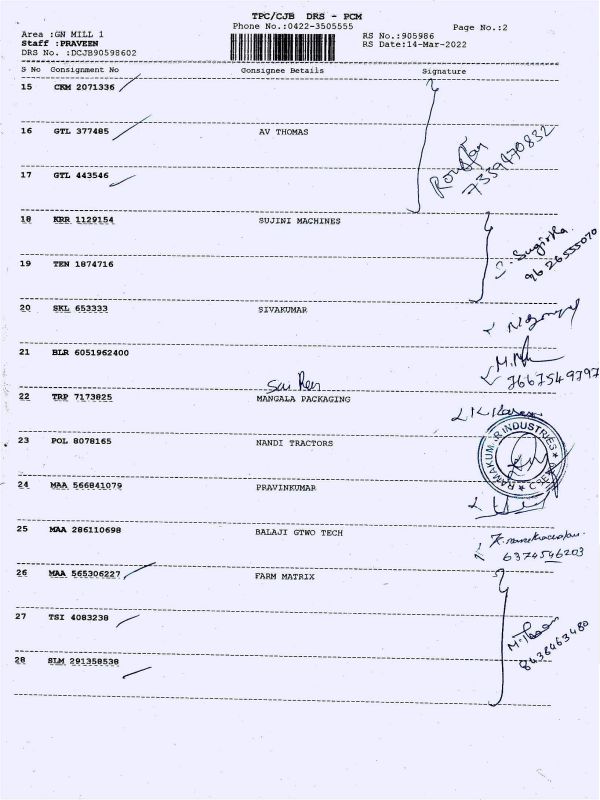 TPC/CJB DRS - PCM
Phone No.:0422-3505555
Page No.:2
Area :GN MILL 1
RS No.:905986
Staff :PRAVEEN
RS Date:14-Mar-2022
DRS No. :DCJB90598602
S No Consignment No Consignee Details Signature
15 CKM 2071336
16 GTL 377485 AV THOMAS
7359470832
17 GTL 443546
18 KRR 1129154 SUJINI MACHINES
9626555070
19 TEN 1874716
20 SKL 653333 SIVAKUMAR
21 BLR 6051962400
7667549797
22 TRP 7173825 MANGALA PACKAGING
23 POL 8078165 NANDI TRACTORS
24 MAA 566841079 PRAVINKUMAR
25 MAA 286110698 BALAJI GTWO TECH
6374546203
26 MAA 565306227 FARM MATRIX
27 TSI 4083238
8438463480
28 SLM 291358538